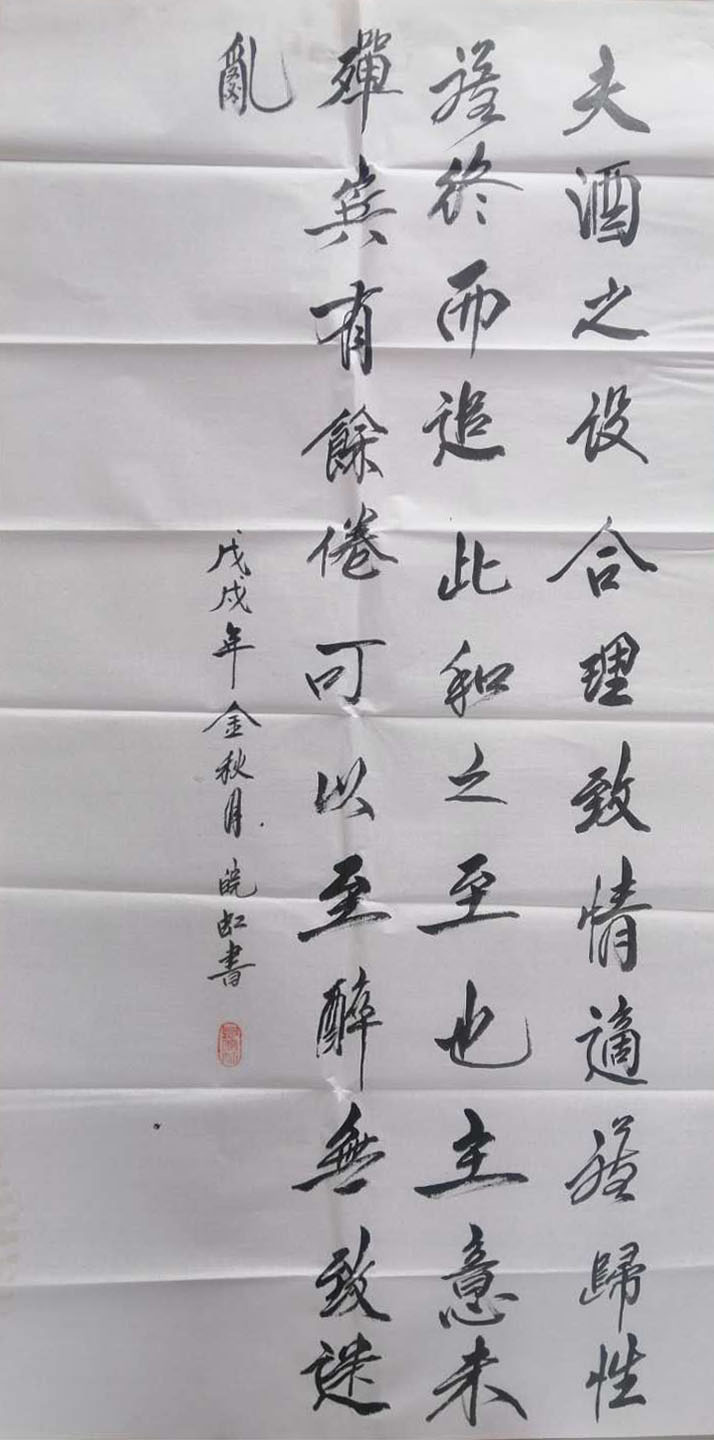 夫酒之设合理致情適禮歸性
禮終而退此和之至也主意未
殫宾有餘倦可以至醉無致迷
亂
戊戌年金秋月皖虹書